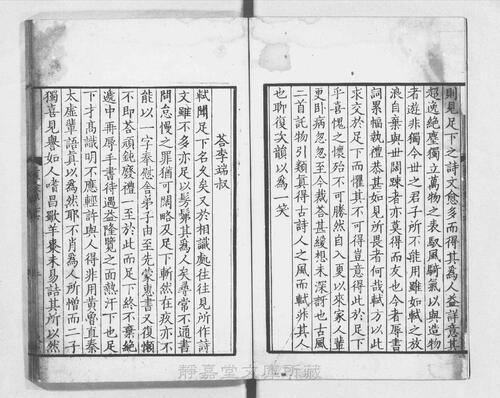 則見足下之詩文愈多而得其為人益詳意其
超逸絕塵獨立萬物之表馭風騎氣以與造物
者遊非獨今世之君子所不能用雖如軾之放
浪自棄與世闊踈者亦莫得而友也今者辱書
詞累幅執禮恭甚如見所畏者何哉軾方以此
求交於足下而懼其不可得豈意得此於足下
乎喜愧之懷殆不可勝然自入夏以來家人輩
更卧病忽忽至今裁荅甚緩想未深訝也古風
二首託物引類真得古詩人之風而軾非其人
也聊復次韻以為一笑
荅李端叔
軾聞足下名久矣又於相識處往往見所作詩
文雖不多亦足以髣髴其為人矣尋常不通書
問怠慢之罪猶可闊略及足下斬然在疚亦不
能以一字奉慰舍弟子由至先蒙惠書又復懶
不即荅頑鈍廢禮一至於此而足下終不棄絕
遞中再辱手書待遇益隆覽之面熱汗下也足
下才高識明不應輕許與人得非用黃魯直秦
太虛輩語真以為然耶不肖為人所憎而二子
獨喜見譽如人嗜昌歜羊棗未易詰其所以然
靜嘉堂文庫所蔵